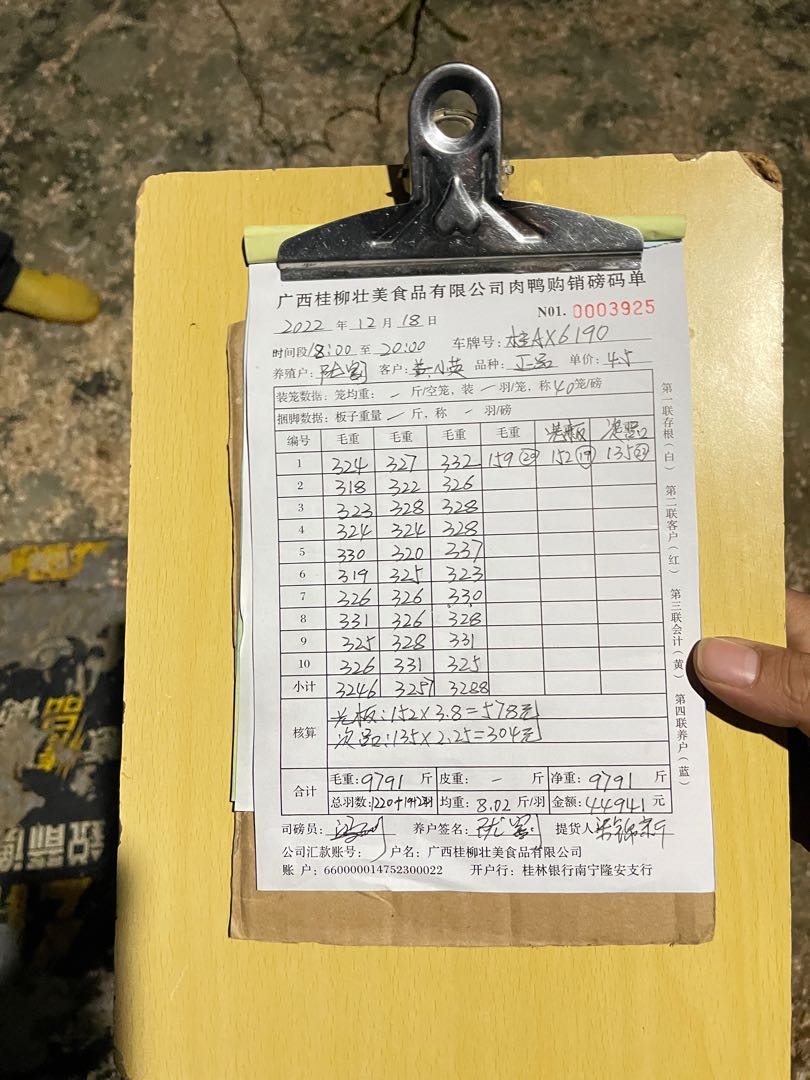 广西桂柳壮美食品有限公司肉鸭购销磅码单
2022 年 12 月 18 日 N01. 0003925
时间段 18:00 至 20:00 车牌号: 桂AX6190
养殖户: 客户: 黄小英 品种: 正品 单价: 4.5
装笼数据: 笼均重: — 斤/空笼, 装 — 羽/笼, 称 40 笼/磅
捆脚数据: 板子重量 — 斤, 称 — 羽/磅
编号 毛重 毛重 毛重 毛重 光板 次品
1 324 327 332 159 (20) 152 (19) 135 (23)
2 318 322 326
3 323 328 328
4 324 324 328
5 330 320 337
6 319 325 323
7 326 326 330
8 331 326 328
9 325 328 331
10 326 331 325
小计 3246 3257 3288
核算 光板: 152×3.8=578元
次品: 135×2.25=304元
合计 毛重: 9791 斤 皮重: — 斤 净重: 9791 斤
总羽数: 1220+19+23羽 均重: 8.02 斤/羽 金额: 44941 元
司磅员: 养户签名: 提货人
公司汇款账号: 户名: 广西桂柳壮美食品有限公司
账 户: 660000014752300022 开户行: 桂林银行南宁隆安支行
第一联存根(白) 第二联客户(红) 第三联会计(黄) 第四联养户(蓝)